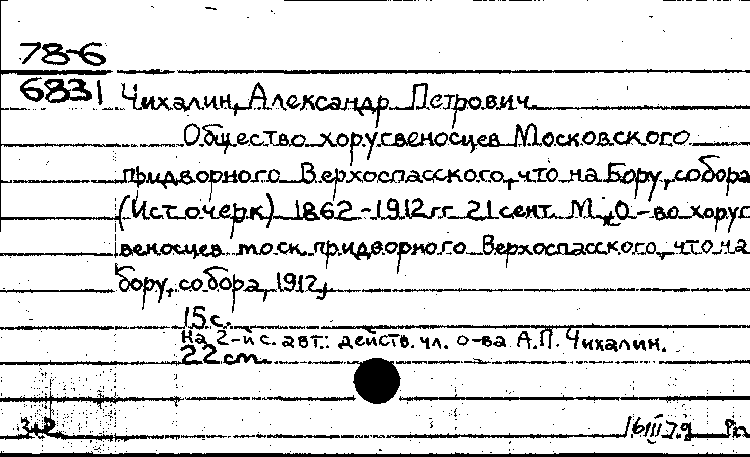 78-6
6831 Чихалин, Александр Петрович.
Общество хоругвеносцев Московского
придворного Верхоспасского, что на Бору, собора
(Ист. очерк) 1862-1912 гг. 21 сент. М., О-во хоруг
веносцев моск. придворного Верхоспасского, что на
бору, собора, 1912,
15 с.
На 2-й с. авт.: действ. чл. о-ва А.П. Чихалин.
22 cm.